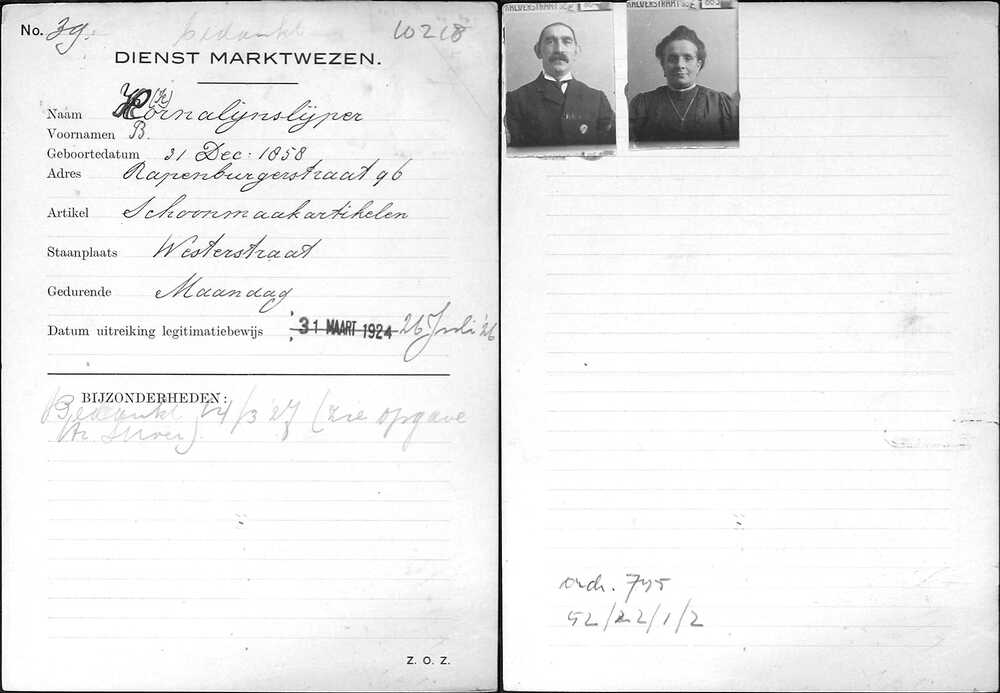 No. 39. bedankt 10218
DIENST MARKTWEZEN.
Naam (K) Hornalijnslijper
Voornamen B.
Geboortedatum 31 Dec. 1858
Adres Rapenburgerstraat 96
Artikel Schoonmaakartikelen
Staanplaats Westerstraat
Gedurende Maandag
Datum uitreiking legitimatiebewijs 31 MAART 1924 26 Juli '26
BIJZONDERHEDEN:
Bedankt 24/3 27 (zie opgave
Z. O. Z.
KALVERSTRAAT
KALVERSTRAAT
ordr. 795
52/22/1/2